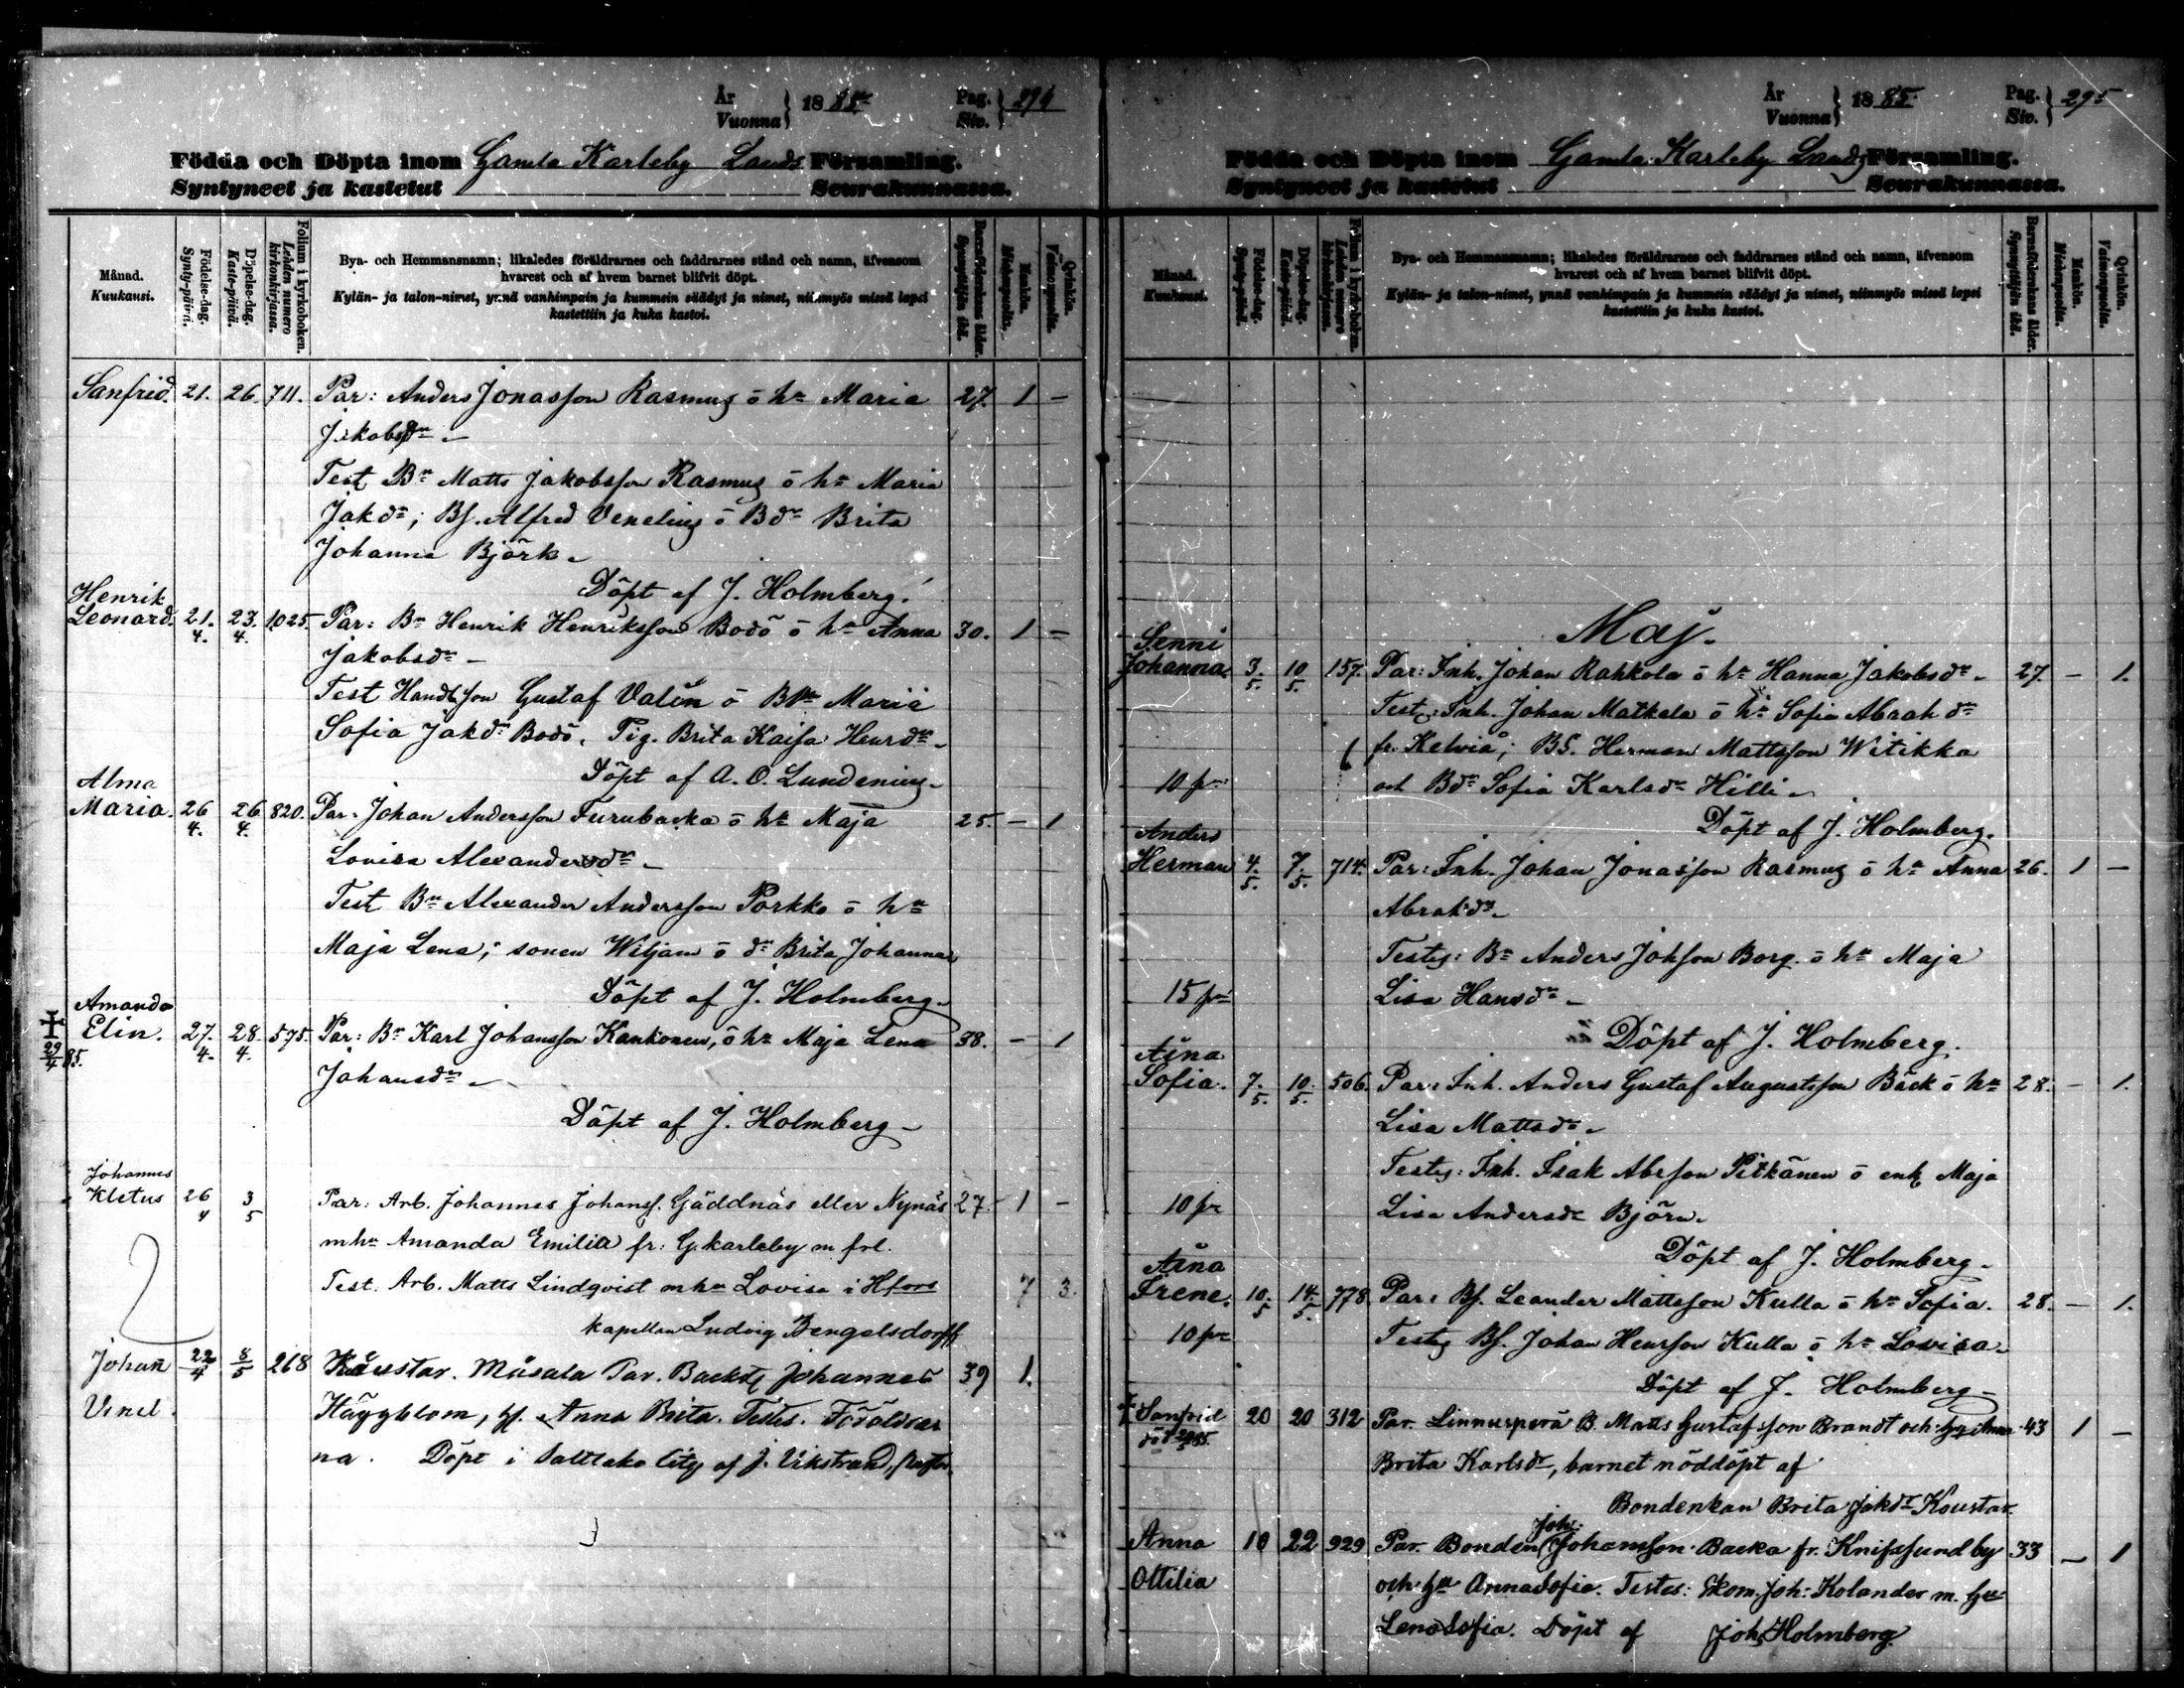 År
Vuonna } 1885. Pag.
Siv. } 294
Födda och Döpta inom Gamla Karleby Lands Församling.
Syntyneet ja kastetut Seurakunnassa.
Månad.
Kuukausi.
Födelse-dag.
Synty-päivä.
Döpelse-dag.
Kaste-päivä.
Folium i kyrkoboken.
Lehden numero kirkonkirjassa.
Bya- och Hemmansnamn; likaledes föräldrarnes och faddrarnes stånd och namn, äfvensom
hvarest och af hvem barnet blifvit döpt.
Kylän- ja talon-nimet, ynnä vanhimpain ja kummein säädyt ja nimet, niinmyös missä lapsi
kastettiin ja kuka kastoi.
Barnaföderskans ålder.
Synnyttäjän ikä.
Mankön.
Miehenpuolta.
Qvinkön.
Vaimonpuolta.
Sanfrid. 21. 26. 711. Par: Anders Jonasson Rasmus o hn Maria 27. 1 –
Jakobsdr –
Test Bn Matts Jakobsson Rasmus o hn Maria
Jakdr; Bs. Alfred Venelius o Bdr Brita
Johanna Björk –
Döpt af J. Holmberg.
Henrik
Leonard. 21/4. 23/4. 1025. Par: Bn Henrik Henriksson Bodö o hn Anna 30. 1 =
Jakobsdr –
Test Gustaf Valen o Maria
Sofia Jakdr Bodö. Pig. Brita Kaisa Henrdr –
Döpt af A. O. Lundenius –
Alma
Maria. 26/4. 26/4. 820. Par: Johan Andersson Furubacka o hn Maja 25. – 1
Lovisa Alexandersdr –
Test Bn Alexander Andersson Porkko o hn
Maja Lena; sonen Wiljam o dr Brita Johanna
Döpt af J. Holmberg –
Amanda
† 29/4 85. Elin. 27/4. 28/4. 575. Par: Bn Karl Johansson Kankonen, o hn Maja Lena 38. – 1
Johansdr –
Döpt af J. Holmberg –
Johannes
Kletus 26/4 3/5 Par: Arb. Johannes Johanss. Gäddnäs eller Nynäs 27. 1 –
m hn Amanda Emilia fr: G. karleby m frl.
Test. Arb. Matts Lindqvist m hn Lovisa i Hfors 7 3.
kapellan Ludvig Bengelsdorff
Johan 22/4 8/5 268 Måsala Par. Johannes 39 1.
Vinel. Häggblom, h. Anna Brita. Testes. Föräldrar
na. Döpt i Saltlake City af J. Vikstrand,
År
Vuonna } 1885. Pag.
Siv. } 295
Födda och Döpta inom Gamla Karleby Lands Församling.
Syntyneet ja kastetut Seurakunnassa.
Månad.
Kuukausi.
Födelse-dag.
Synty-päivä.
Döpelse-dag.
Kaste-päivä.
Folium i kyrkoboken.
Lehden numero kirkonkirjassa.
Bya- och Hemmansnamn; likaledes föräldrarnes och faddrarnes stånd och namn, äfvensom
hvarest och af hvem barnet blifvit döpt.
Kylän- ja talon-nimet, ynnä vanhimpain ja kummein säädyt ja nimet, niinmyös missä lapsi
kastettiin ja kuka kastoi.
Barnaföderskans ålder.
Synnyttäjän ikä.
Mankön.
Miehenpuolta.
Qvinkön.
Vaimonpuolta.
Maj.
Senni
Johanna. 3/5. 10/5. 157. Par: Inh. Johan Rahkola o hn Hanna Jakobsdr – 27. – 1.
Test: Inh. Johan Matkela o hn Sofia Abrahdr
fr. Kelviå; BS. Herman Mattsson Witikka
10 p. och Bdr Sofia Karlsdr Hilli –
Döpt af J. Holmberg.
Anders
Herman 4/5. 7/5. 714. Par: Inh. Johan Jonasson Rasmus o hn Anna 26. 1 –
Abrahdr –
Testes: Bn Anders Johsson Borg o hn Maja
15 p. Lisa Hansdr –
Döpt af J. Holmberg.
Aina
Sofia. 7/5. 10/5. 506. Par: Inh. Anders Gustaf Augustsson Bäck o hn 28. – 1.
Lisa Mattsdr –
Testes: Inh. Isak Abrsson Pitkänen o enk Maja
10 p. Lisa Andersdr Björn –
Döpt af J. Holmberg –
Aina
Irene. 10/5 14/5. 778. Par: Bs. Leander Mattsson Kulla o hn Sofia. 28. – 1.
10 p. Testes Bs. Johan Henrsson Kulla o hn Lovisa –
Döpt af J. Holmberg –
† Sanfrid 20 20 312 Par. Linnusperä B. Matts Gustafsson Brandt och 43 1 –
död Brita Karlsdr, barnet nöddöpt af
Bondenkan Brita Jakdr Koustar.
Anna 10 22 929 Par. Bonden Joh: Johansson Backa fr. Knifssund by 33 – 1
Ottilia och hn Anna Sofia. Testes: Joh: Kolander m. hn
Lena Sofia. Döpt af Joh. Holmberg